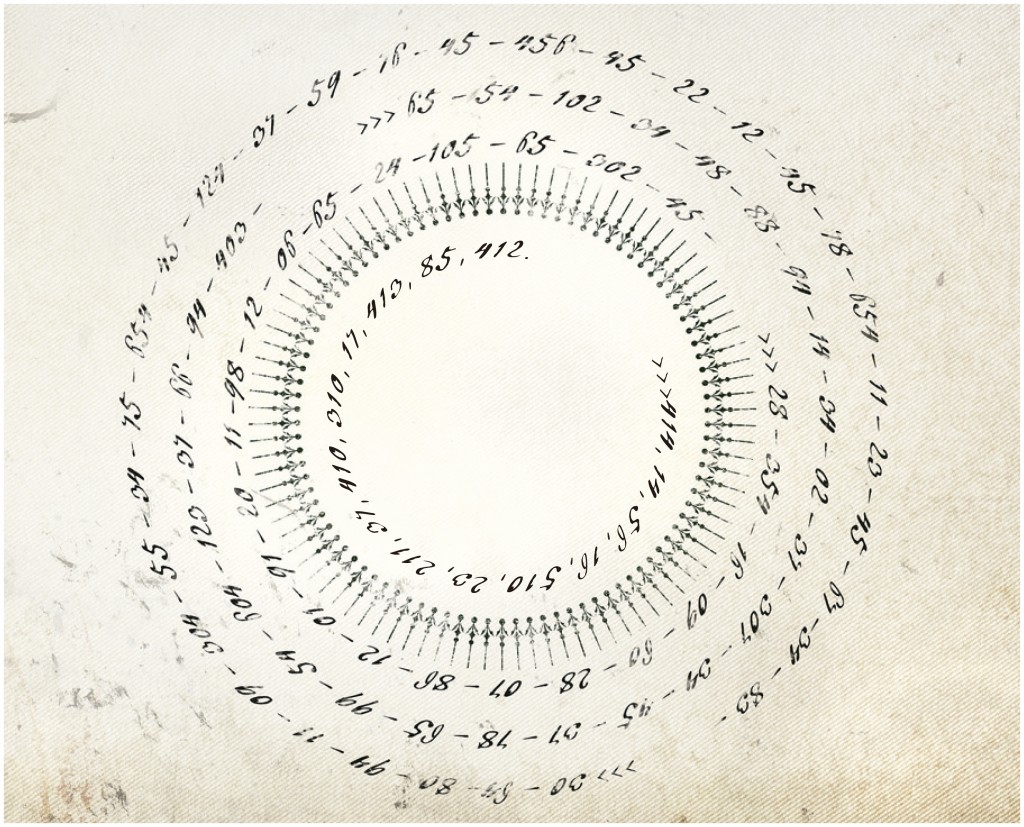 >>> 30 - 64 - 80 - 94 - 11 - 09 - 304 - 55 - 34 - 75 - 654 - 45 - 124 - 37 - 59 - 16 - 45 - 456 - 45 - 22 - 12 - 45 - 78 - 654 - 11 - 23 - 45 - 67 - 34 - 83 -
>>> 65 - 54 - 102 - 34 - 48 - 88 - 94 - 14 - 34 - 02 - 37 - 307 - 34 - 45 - 37 - 78 - 65 - 99 - 54 - 604 - 123 - 37 - 66 - 94 - 403 -
>>> 28 - 354 - 16 - 09 - 60 - 28 - 07 - 86 - 12 - 01 - 91 - 20 - 11 - 98 - 12 - 06 - 65 - 24 - 105 - 65 - 302 - 45 -
>>> 414, 14, 56, 16, 510, 23, 211, 37, 410, 310, 17, 413, 85, 412.